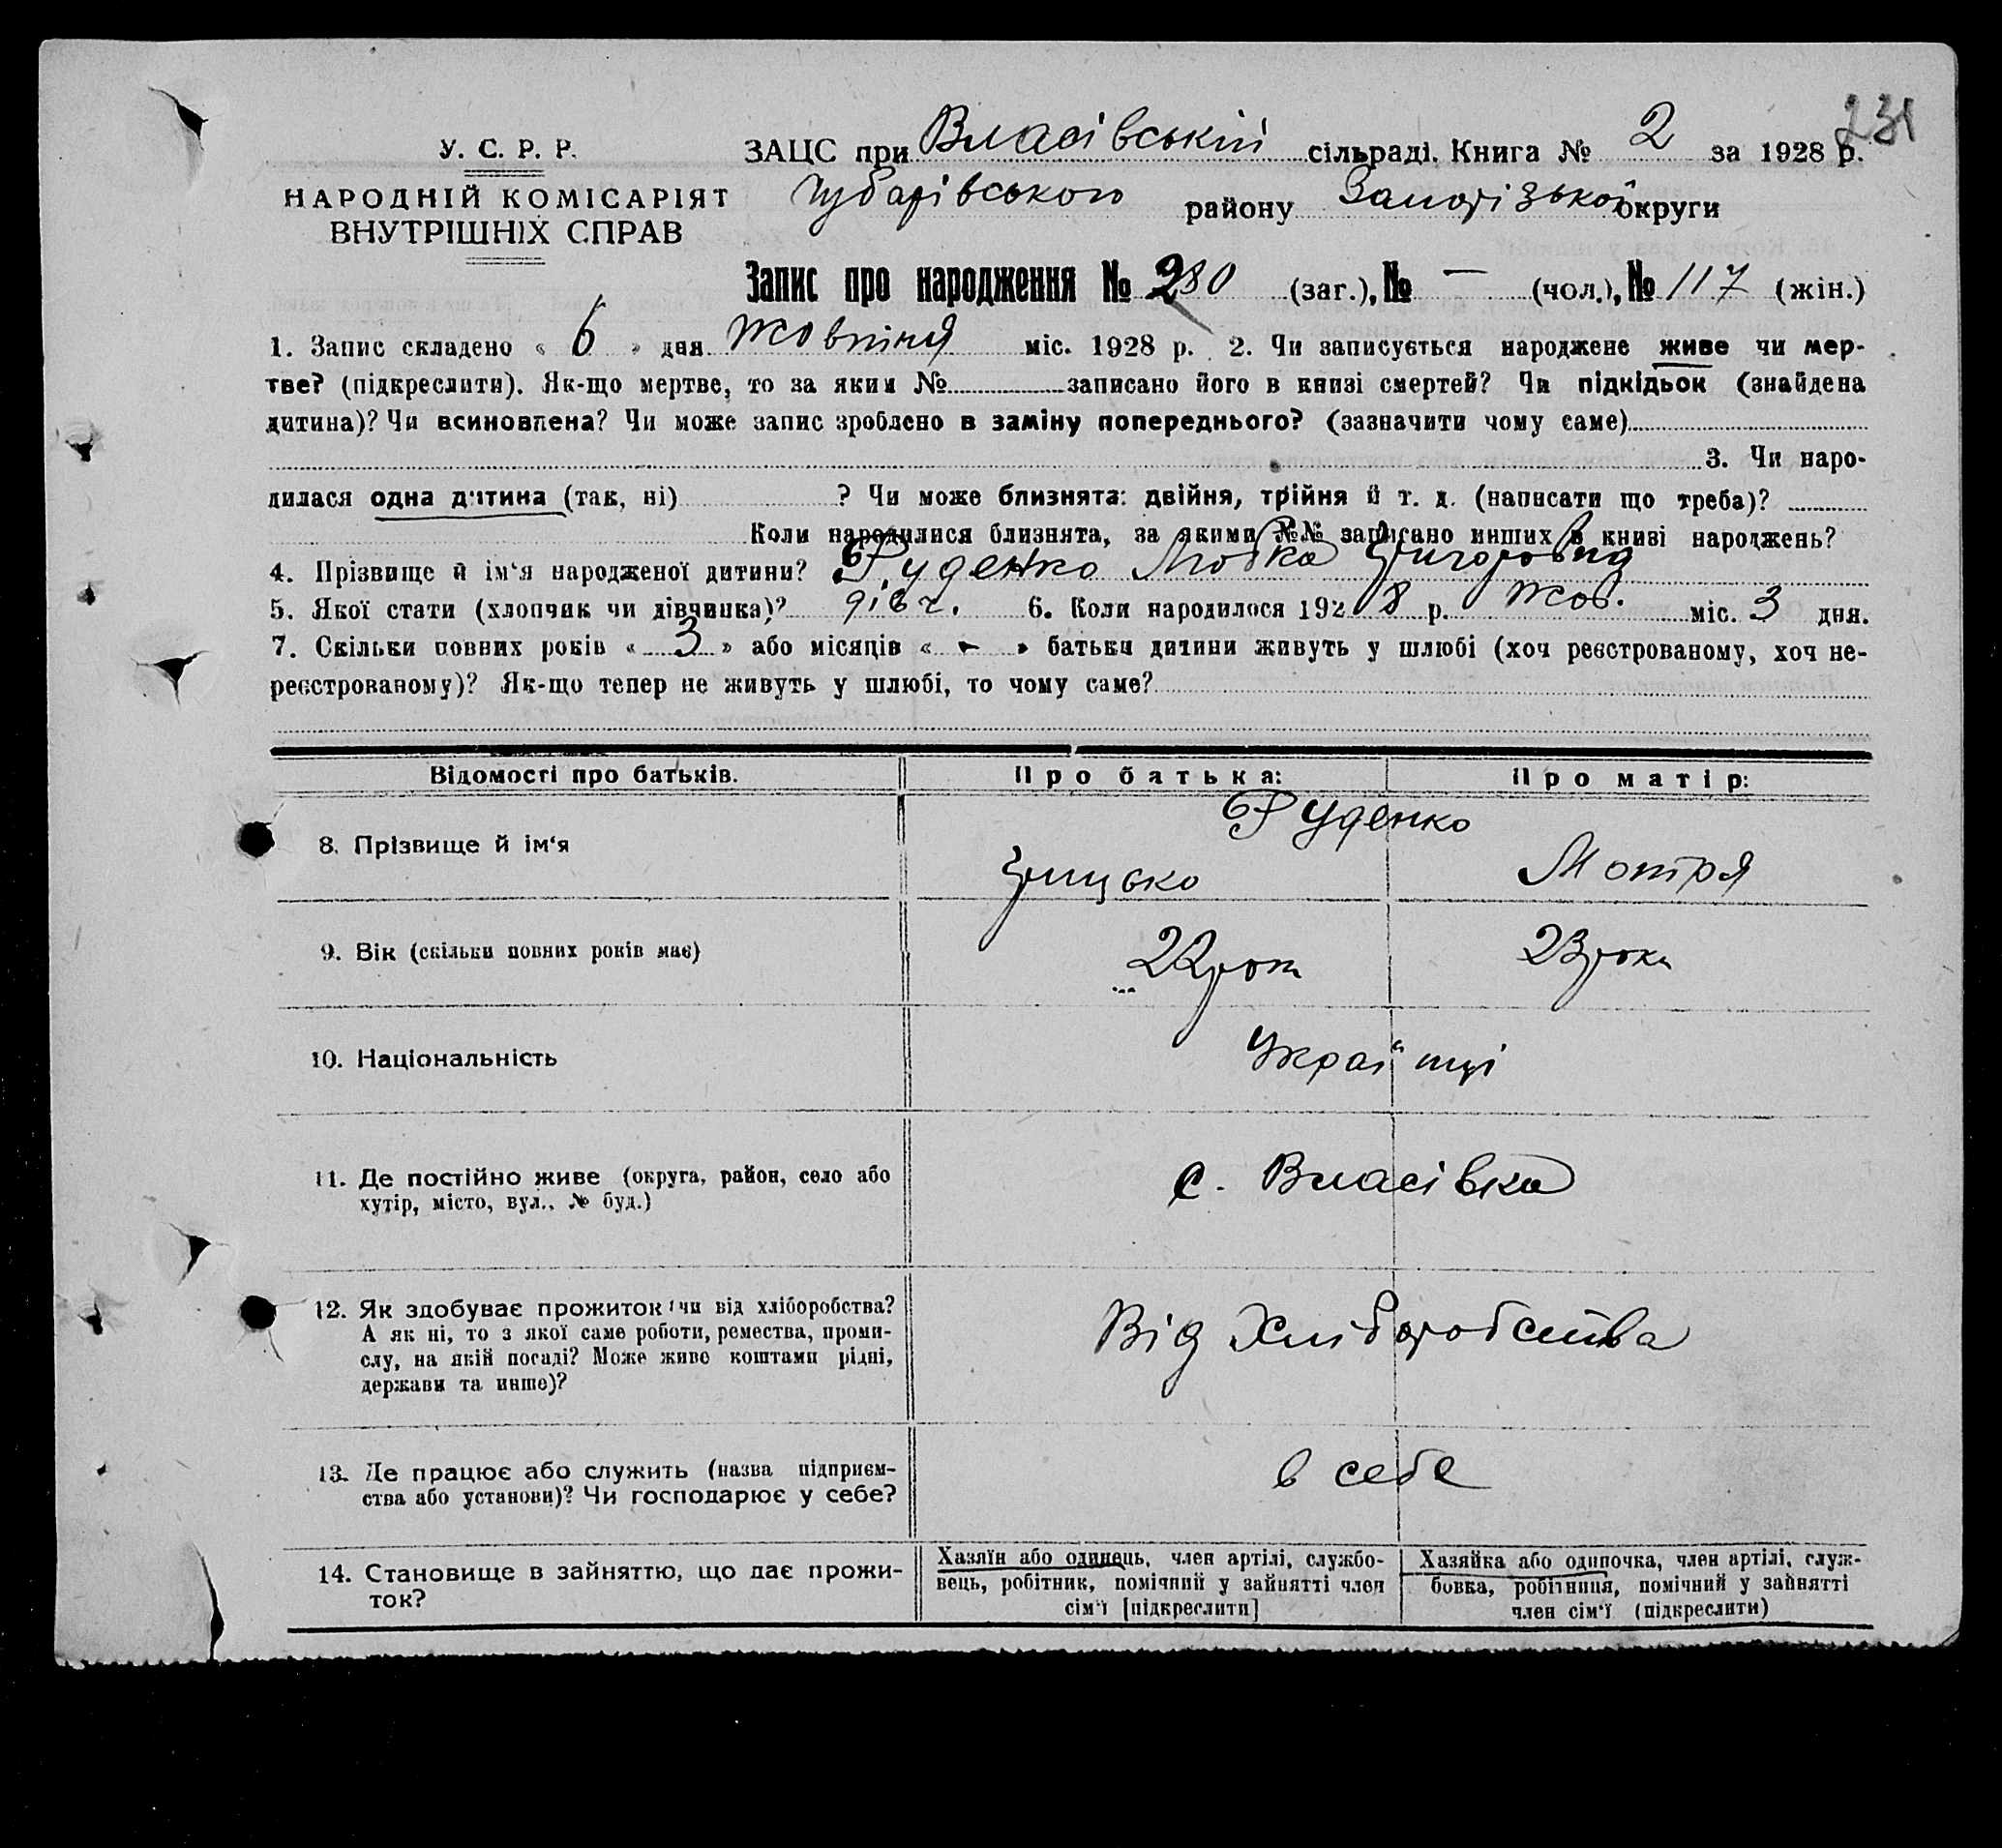 231
У. С. Р. Р.
НАРОДНІЙ КОМІСАРІЯТ
ВНУТРІШНІХ СПРАВ
ЗАЦС при Власівській сільраді. Книга № 2 за 1928 р.
Чубарівського району Запорізької округи
Запис про народження № 280 (заг.), № — (чол.), № 117 (жін.)
1. Запис складено « 6 » дня жовтня міс. 1928 р. 2. Чи записується народжене живе чи мер-
тве? (підкреслити). Як-що мертве, то за яким № записано його в книзі смертей? Чи підкідьок (знайдена
дитина)? Чи всиновлена? Чи може запис зроблено в заміну попереднього? (зазначити чому саме)
3. Чи наро-
дилася одна дитина (так, ні) ? Чи може близнята: двійня, трійня й т. д. (написати що треба)?
Коли народилися близнята, за якими №№ записано инших в книзі народжень?
4. Прізвище й ім‘я народженої дитини? Руденко Любка Григоровна
5. Якої стати (хлопчик чи дівчинка)? дівч. 6. Коли народилося 1928 р. жов. міс. 3 дня.
7. Скільки повних років « 3 » або місяців « - » батьки дитини живуть у шлюбі (хоч реєстрованому, хоч не-
реєстрованому)? Як-що тепер не живуть у шлюбі, то чому саме?
Відомості про батьків. Про батька: Про матір:
8. Прізвище й ім‘я Руденко
Грицько Мотря
9. Вік (скільки повних років має) 22 роки 23 роки
10. Національність Українці
11. Де постійно живе (округа, район, село або
хутір, місто, вул., № буд.) с. Власівка
12. Як здобуває прожиток: чи від хліборобства?
А як ні, то з якої саме роботи, ремества, проми-
слу, на якій посаді? Може живе коштами рідні,
держави та инше)? Від Хліборобства
13. Де працює або служить (назва підприєм-
ства або установи)? Чи господарює у себе? в себе
14. Становище в зайняттю, що дає прожи-
ток?
Хазяїн або одинець, член артілі, службо-
вець, робітник, помічний у зайнятті член
сім‘ї [підкреслити]
Хазяйка або одиночка, член артілі, служ-
бовка, робітниця, помічний у зайнятті
член сім‘ї (підкреслити)